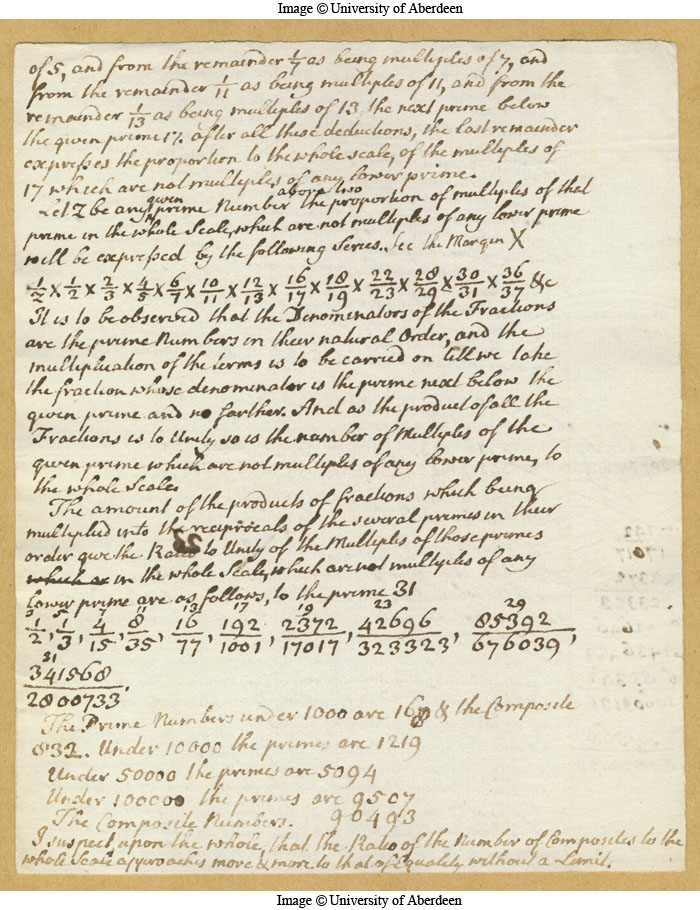 Image © University of Aberdeen
of 5, and from the remainder 1/7 as being multiples of 7, and
from the remainder 1/11 as being multiples of 11, and from the
remainder 1/13 as being multiples of 13 the next prime below
the given prime 17. after all these deductions, the last remainder
expresses the proportion to the whole scale, of the multiples of
17 which are not multiples of any lower prime.
Let Z be any given prime Number above two the proportion of multiples of that
prime in the whole Scale, which are not multiples of any lower prime
will be expressed by the following Series. See the Margin X
1/2 x 1/2 x 2/3 x 4/5 x 6/7 x 10/11 x 12/13 x 16/17 x 18/19 x 22/23 x 28/29 x 30/31 x 36/37 &c
It is to be observed that the Denominators of the Fractions
are the prime Numbers in their natural Order, and the
multiplication of the terms is to be carried on till we take
the fraction whose denominator is the prime next below the
given prime and no farther. And as the product of all the
Fractions is to Unity so is the number of Multiples of the
given prime which are not multiples of any lower prime, to
the whole Scale.
The amount of the products of fractions which being
multiplied into the reciprocals of the several primes in their
order give the Ratio to Unity of the Multiples of those primes
which are in the whole Scale, which are not multiples of any
lower prime are as follows, to the prime 31
3 5 7 11 13 17 19 23 29
1/2, 1/3, 4/15, 8/35, 16/77, 192/1001, 2372/17017, 42696/323323, 85392/676039,
31
341568/2800733.
The Prime Numbers under 1000 are 168 & the Composite
832. Under 10000 the primes are 1219
Under 50000 the primes are 5094
Under 100000 the primes are 9507
The Composite Numbers. 90493
I suspect upon the whole, that the Ratio of the Number of Composites to the
whole Scale approaches more & more to that of Equality without a Limit.
Image © University of Aberdeen